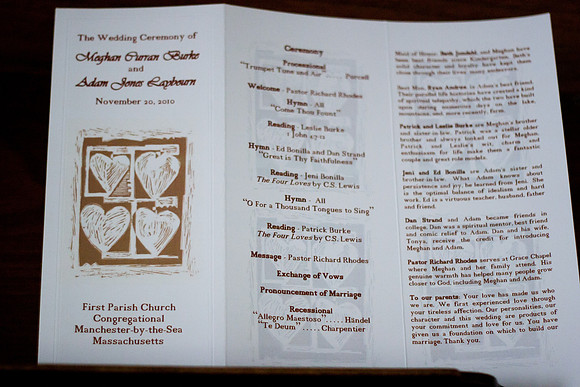 The Wedding Ceremony of
Meghan Curran Burke
and
Adam Jones Laybourn
November 20, 2010
First Parish Church
Congregational
Manchester-by-the-Sea
Massachusetts
Ceremony
Processional
"Trumpet Tune and Air" . . . . . Purcell
Welcome - Pastor Richard Rhodes
Hymn - All
"Come Thou Fount"
Reading - Leslie Burke
1 John 4:7-12
Hymn - Ed Bonilla and Dan Strand
"Great is Thy Faithfulness"
Reading - Jeni Bonilla
The Four Loves by C.S. Lewis
Hymn - All
"O For a Thousand Tongues to Sing"
Reading - Patrick Burke
The Four Loves by C.S. Lewis
Message - Pastor Richard Rhodes
Exchange of Vows
Pronouncement of Marriage
Recessional
"Allegro Maestoso" . . . . . Händel
"Te Deum" . . . . . Charpentier
Maid of Honor, Beth and Meghan have
been best friends since Kindergarten. Beth's
solid character and loyalty have kept them
close through their many endeavors.
Best Man, Ryan Andrew is Adam's best friend.
Their parallel life histories have created a kind
of spiritual telepathy, which the two have built
upon during numerous days on the lake,
mountains, and, more recently, farm.
Patrick and Leslie Burke are Meghan's brother
and sister-in-law. Patrick was a stellar older
brother and always looked out for Meghan.
Patrick and Leslie's wit, charm and
enthusiasm for life make them a fantastic
couple and great role models.
Jeni and Ed Bonilla are Adam's sister and
brother-in-law. What Adam knows about
persistence and joy, he learned from Jeni. She
is the optimal balance of idealism and hard
work. Ed is a virtuous teacher, husband, father
and friend.
Dan Strand and Adam became friends in
college. Dan was a spiritual mentor, best friend
and comic relief to Adam. Dan and his wife,
Tonya, receive the credit for introducing
Meghan and Adam.
Pastor Richard Rhodes serves at Grace Chapel
where Meghan and her family attend. His
genuine warmth has helped many people grow
closer to God, including Meghan and Adam.
To our parents: Your love has made us who
we are. We first experienced love through
your tireless affection. Our personalities, our
character and this wedding are products of
your commitment and love for us. You have
given us a foundation on which to build our
marriage. Thank you.